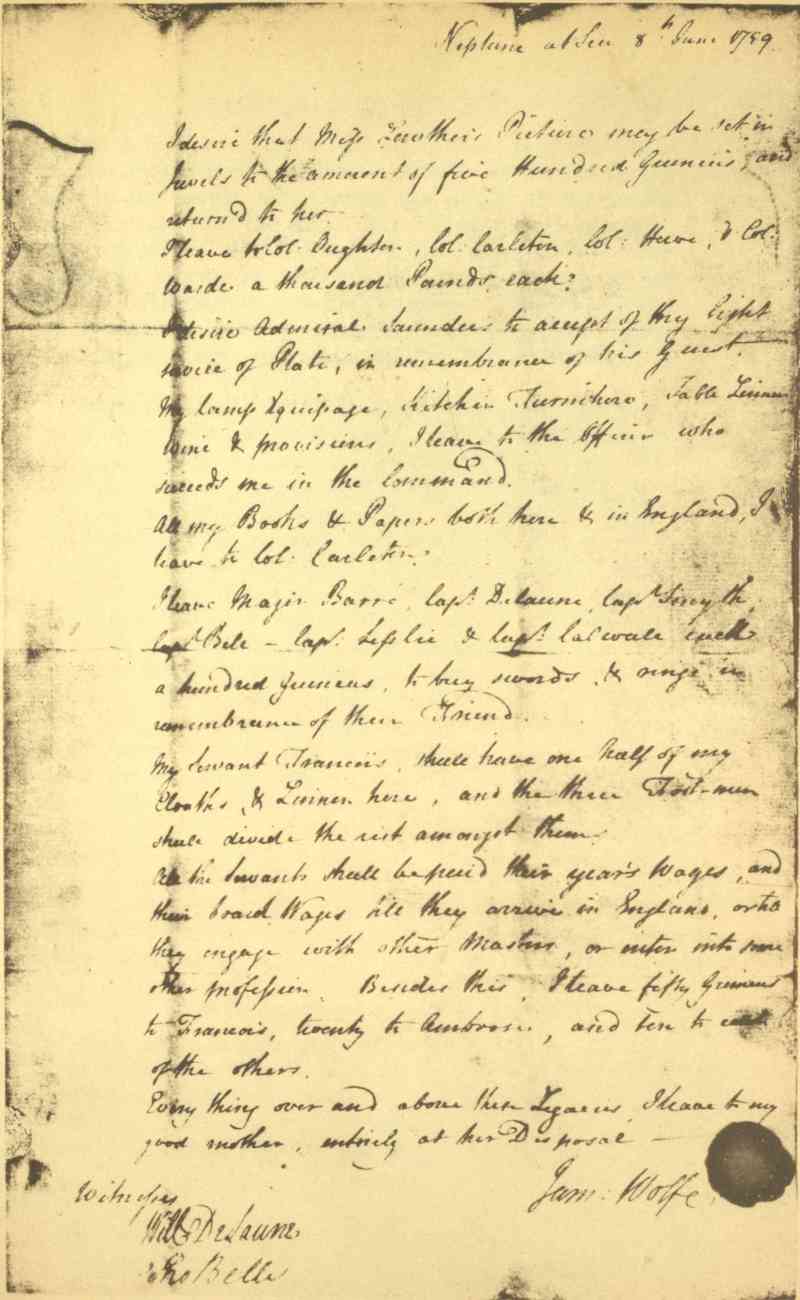 Neptune at Sea 8th June 1759
I desire that Miss Lowther's Picture may be set in
Jewels to the amount of five Hundred Guineas, and
return'd to her.
I leave to Col. Oughton, Col. Carleton, Col: Howe, & Col:
Warde a thousand Pounds each.
I desire Admiral Saunders to accept of my light
service of Plate, in remembrance of his Guest.
My Camp Equipage, Kitchen Furniture, Table Linnen
Wine & provisions, I leave to the Officer who
succeeds me in the Command.
All my Books & Papers both here & in England, I
leave to Col. Carleton.
I leave Major Barré, Capt. Delaune, Capt Smyth,
Capt Bell - Capt. Leslie & Capt. Calwall each
a hundred Guineas, to buy swords & rings in
remembrance of their Friend.
My Servant Francois, shall have one half of my
Cloaths & Linnen here, and the three Foot-men
shall divide the rest amongst them.
All the Servants shall be paid their year's Wages, and
their board Wages till they arrive in England, or till
they engage with other Masters, or enter into some
other profession. Besides this, I leave fifty Guineas
to Francois, twenty to Ambrose, and ten to each
of the others.
Every thing over and above these Legacies, I leave to my
good mother, entirely at her Disposal —
Jam: Wolfe.
Witnesses
Will DeLaune
Tho Belle